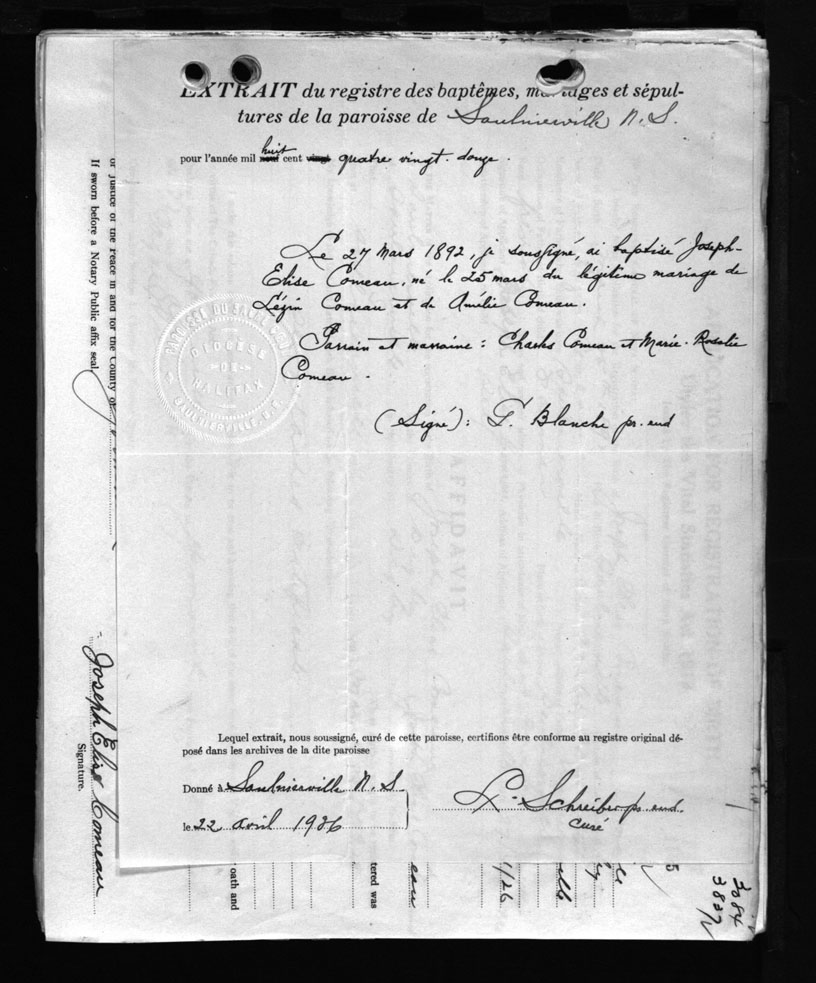 EXTRAIT du registre des baptêmes, mariages et sépul-
tures de la paroisse de Saulnierville N.S.
pour l'année mil huit cent quatre vingt-douze.
Le 27 Mars 1892, je soussigné, ai baptisé Joseph-
Elise Comeau, né le 25 mars du légitime mariage de
Lézin Comeau et de Amélie Comeau.
Parrain et marraine : Charles Comeau et Marie-Rosalie
Comeau.
(Signé) : F. Blanche pr. eud
DIOCESE
DE
HALIFAX
SAULNIERVILLE, N.S.
Lequel extrait, nous soussigné, curé de cette paroisse, certifions être conforme au registre original dé-
posé dans les archives de la dite paroisse
Donné à Saulnierville N.S.
le 22 avril 1926
L. Schreiber pr. eud.
curé
or Justice of the Peace in and for the County of
If sworn before a Notary Public affix seal.
Joseph Elise Comeau
Signature.
AFFIDAVIT
oath and
tered was
eau
1/26
5
3084
3827